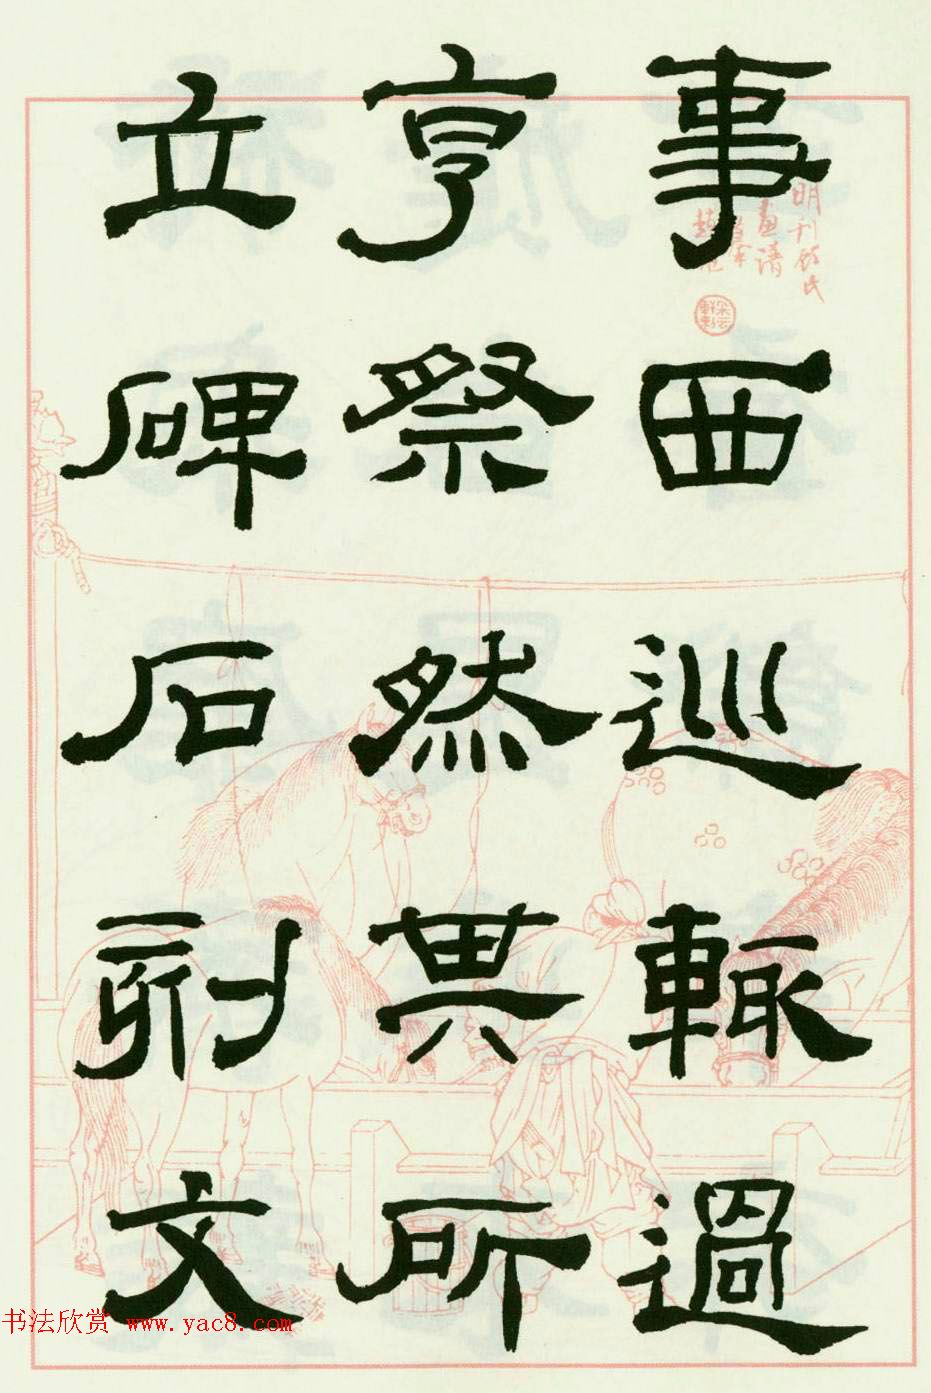 事西巡輒過
亨祭然其所
立碑石刻文
明刊顾氏
畫譜
书法欣赏 www.yac8.com